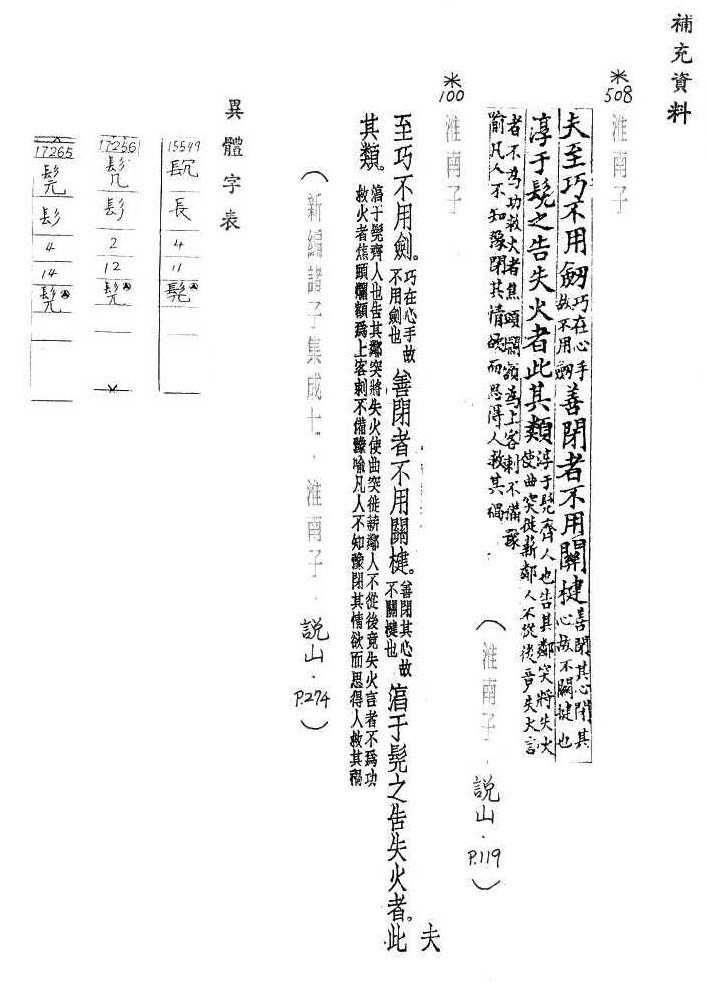 補充資料
*508
淮南子
夫至巧不用劒巧在心手故不用劒善閉者不用關楗善閉其心閉其心故不關楗也
淳于髡之告失火者此其類淳于髡齊人也告其鄰突將失火使曲突徙薪鄰人不從後竟失火言
者不為功救火者焦頭爛額為上客刺不備豫
喻凡人不知豫閉其情欲而思得人救其禍
（淮南子．説山．P.119）
*100
淮南子
夫
至巧不用劍。巧在心手故不用劍也善閉者不用關楗。善閉其心故不關楗也淳于髡之告失火者。此
其類。淳于髡齊人也告其鄰突將失火使曲突徙薪鄰人不從後竟失火言者不爲功救火者焦頭爛額爲上客刺不備豫喻凡人不知豫閉其情欲而思得人救其禍
（新編諸子集成七．淮南子．説山．P.274）
異體字表
15549
長
4
11
髡
17256
髟
2
12
髡
17265
髡
髟
4
14
髡